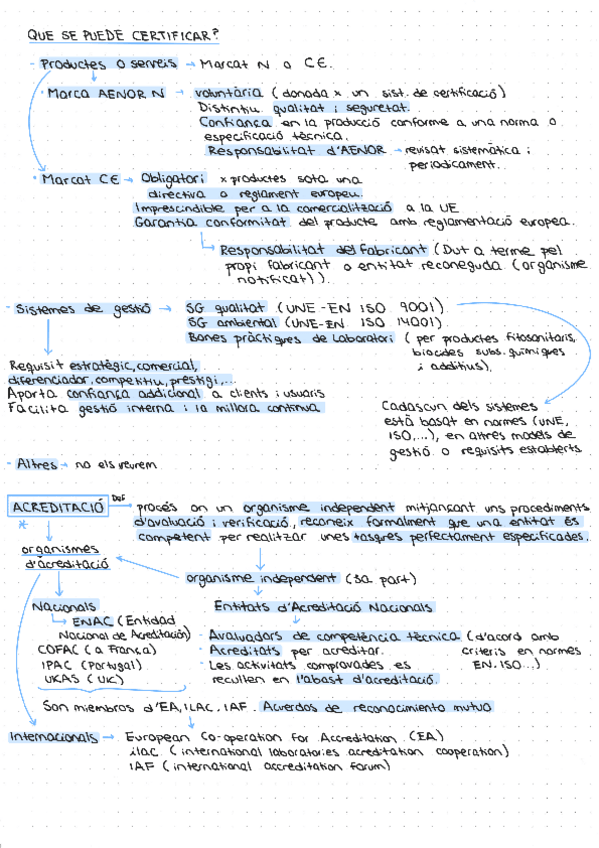 QUE SE PUEDE CERTIFICAR?
- Productes o serveis → Marcat N o CE.
· Marca AENOR N → voluntària (donada x un sist. de certificació)
Distintiu qualitat i seguretat.
Confiança en la producció conforme a una norma o
especificació tècnica.
Responsabilitat d'AENOR → revisat sistemàtica i
periodicament.
· Marcat CE → Obligatori x productes sota una
directiva o reglament europeu.
Imprescindible per a la comercialització a la UE
Garantia conformitat del producte amb reglamentació europea.
Responsabilitat del fabricant (Dut a terme pel
propi fabricant o entitat reconeguda (organisme
notificat)).
- Sistemes de gestió → SG qualitat (UNE-EN ISO 9001)
SG ambiental (UNE-EN ISO 14001)
Bones pràctiques de Laboratori (per productes fitosanitaris,
biocides subs. químiques
i additius).
Requisit estratègic, comercial,
diferenciador, competitiu, prestigi,...
Aporta confiança addicional a clients i usuaris
Facilita gestió interna i la millora continua
Cadascun dels sistemes
està basat en normes (UNE,
ISO,...), en altres models de
gestió o requisits establerts
- Altres → no els veurem
ACREDITACIÓ DEF → procés on un organisme independent mitjançant uns procediments
d'avaluació i verificació, reconeix formalment que una entitat és
competent per realitzar unes tasques perfectament especificades.
*
organismes
d'acreditació
organisme independent (3a part)
Nacionals
ENAC (Entidad
Nacional de Acreditación)
COFAC (a França)
IPAC (Portugal)
UKAS (UK)
Entitats d'Acreditació Nacionals
· Avaluadors de competència tècnica (d'acord amb
criteris en normes
EN.ISO...)
· Acreditats per acreditar.
· Les activitats comprovades es
recullen en l'abast d'acreditació.
Son miembros d'EA, ILAC, IAF. Acuerdos de reconocimiento mutuo
Internacionals → European Co-operation for Accreditation (EA)
ilac (international laboratories acreditation cooperation)
IAF (international accreditation forum)